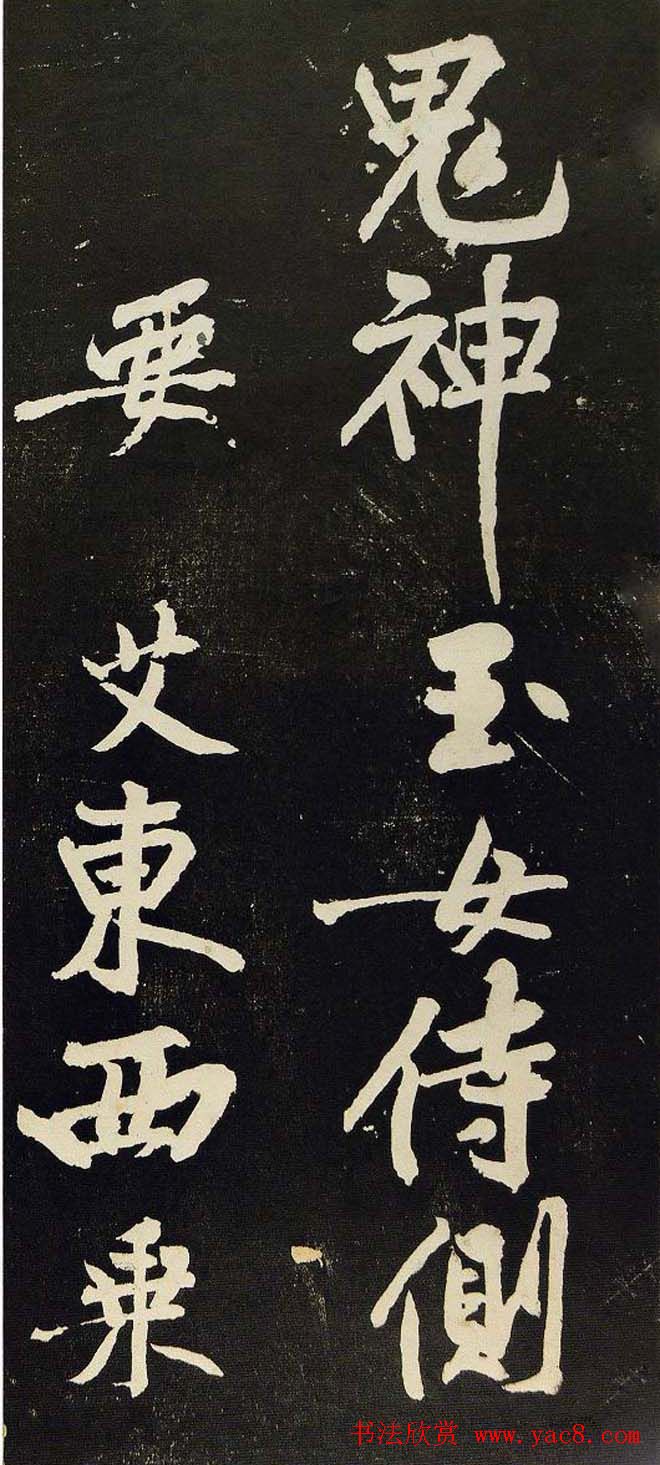 鬼神玉女侍側
要艾東西乗
书法欣赏 www.yac8.com